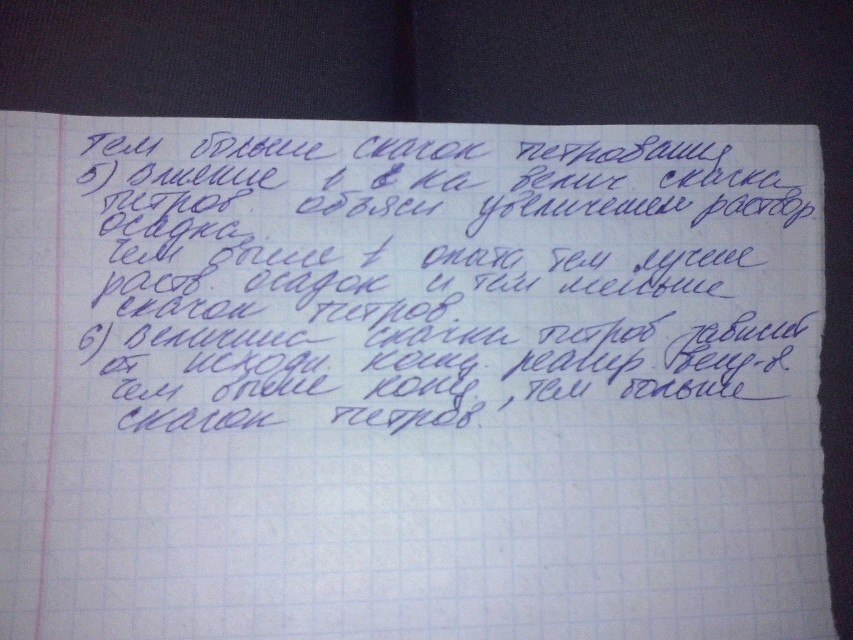 тем больше скачок титрования
5) Влияние t на велич скачка
титров. объясн увеличением раствор
осадка.
Чем выше t опыта, тем лучше
раств. осадок и тем меньше
скачок титров.
6) Величина скачка титров зависит
от исходн. конц. реагир. вещ-в.
Чем выше конц., тем больше
скачок титров.